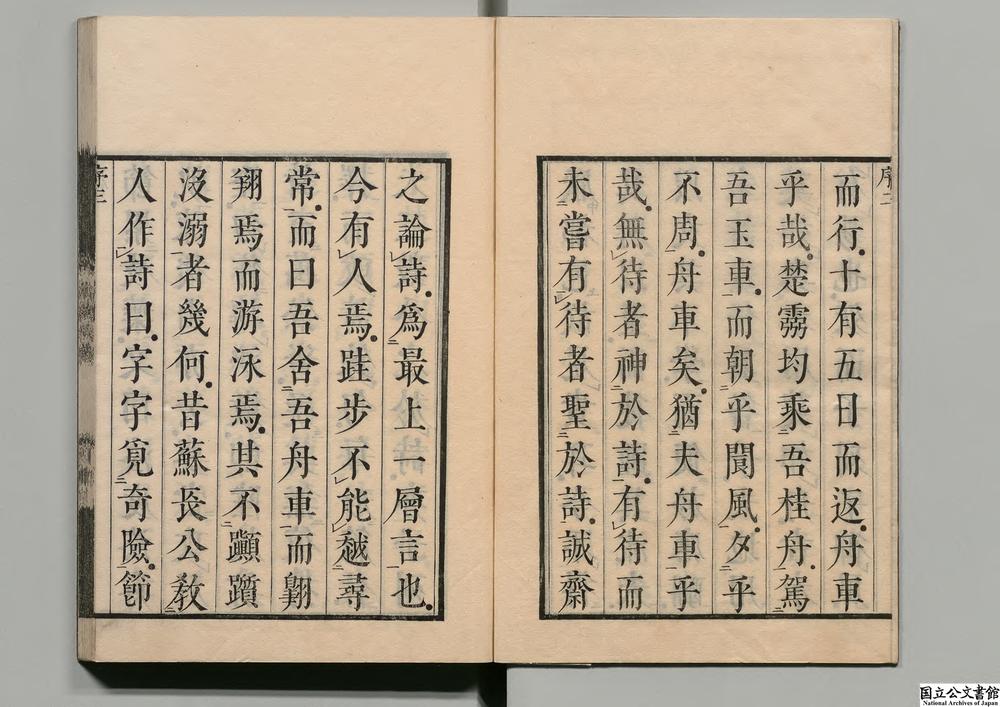 序二
而行十有五日而返舟車
乎哉楚靈均乘吾桂舟駕
吾玉車而朝乎閬風夕乎
不周舟車矣猶夫舟車乎
哉無待者神於詩有待而
未嘗有待者聖於詩誠齋
之論詩爲最上一層言也
今有人焉跬步不能越尋
常而曰吾舍吾舟車而翺
翔焉而游泳焉其不顚躓
沒溺者幾何昔蘇長公教
人作詩曰字字覓奇險節
序三
国立公文書館
National Archives of Japan